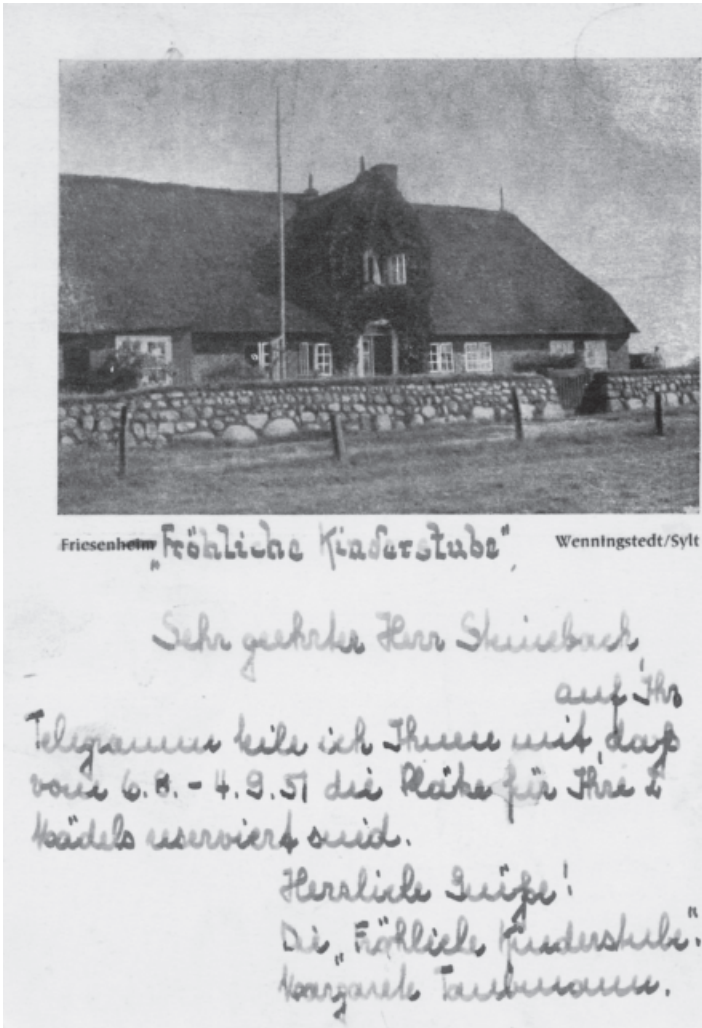 Friesenheim „Fröhliche Kinderstube“, Wenningstedt/Sylt
Sehr geehrter Herr Steinebach,
auf Ihr
Telegramm teile ich Ihnen mit, daß
vom 6.8. - 4.9.51 die Plätze für Ihre 2
Mädels reserviert sind.
Herzliche Grüße!
Die „Fröhliche Kinderstube“.
Margarete Taubmann.